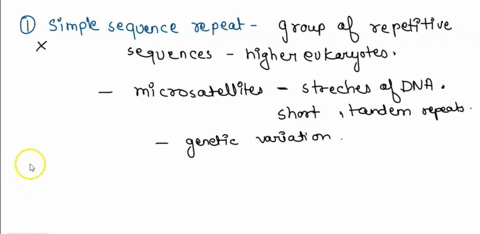 ① Simple sequence repeat - group of repetitive
x sequences - higher eukaryotes.
- microsatellites - streches of DNA.
short, tandem repeats.
- genetic variation.